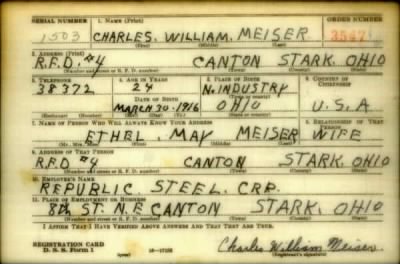 SERIAL NUMBER 1. NAME (Print) ORDER NUMBER
1503 CHARLES. WILLIAM. MEISER 3547
(First) (Middle) (Last)
2. ADDRESS (Print)
R.F.D. #4 CANTON STARK. OHIO
(Number and street or R. F. D. number) (Town) (County) (State)
3. TELEPHONE 4. AGE IN YEARS 5. PLACE OF BIRTH 6. COUNTRY OF CITIZENSHIP
38372 24 N. INDUSTRY
DATE OF BIRTH (Town or county)
MARCH 30. 1916 OHIO U.S.A
(Exchange) (Number) (Mo.) (Day) (Yr.) (State or country)
7. NAME OF PERSON WHO WILL ALWAYS KNOW YOUR ADDRESS 8. RELATIONSHIP OF THAT PERSON
ETHEL MAY MEISER WIFE
(Mr., Mrs., Miss) (First) (Middle) (Last)
9. ADDRESS OF THAT PERSON
R.F.D #4 CANTON STARK. OHIO
(Number and street or R. F. D. number) (Town) (County) (State)
10. EMPLOYER'S NAME
REPUBLIC STEEL. CRP.
11. PLACE OF EMPLOYMENT OR BUSINESS
8th ST. N.E CANTON STARK. OHIO
(Number and street or R. F. D. number) (Town) (County) (State)
I AFFIRM THAT I HAVE VERIFIED ABOVE ANSWERS AND THAT THEY ARE TRUE.
REGISTRATION CARD
D. S. S. Form 1 (over) Charles William Meiser
(Registrant's signature)